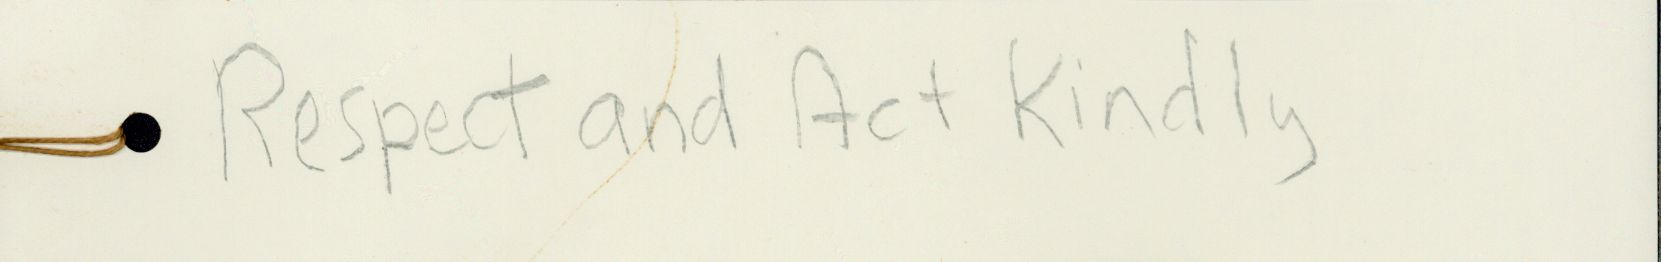 Respect and Act Kindly